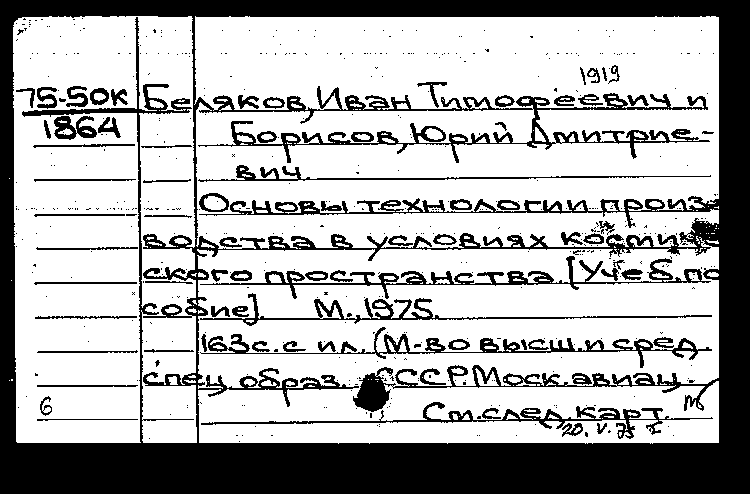 1919
75-50к Беляков, Иван Тимофеевич и
1864 Борисов, Юрий Дмитрие-
вич.
Основы технологии произ-
водства в условиях косми
ского пространства. [Учеб. по
собие]. М., 1975.
163 с. с ил. (М-во высш. и сред.
спец. образ. СССР. Моск. авиац.
6 См. след. карт.
20. V. 75